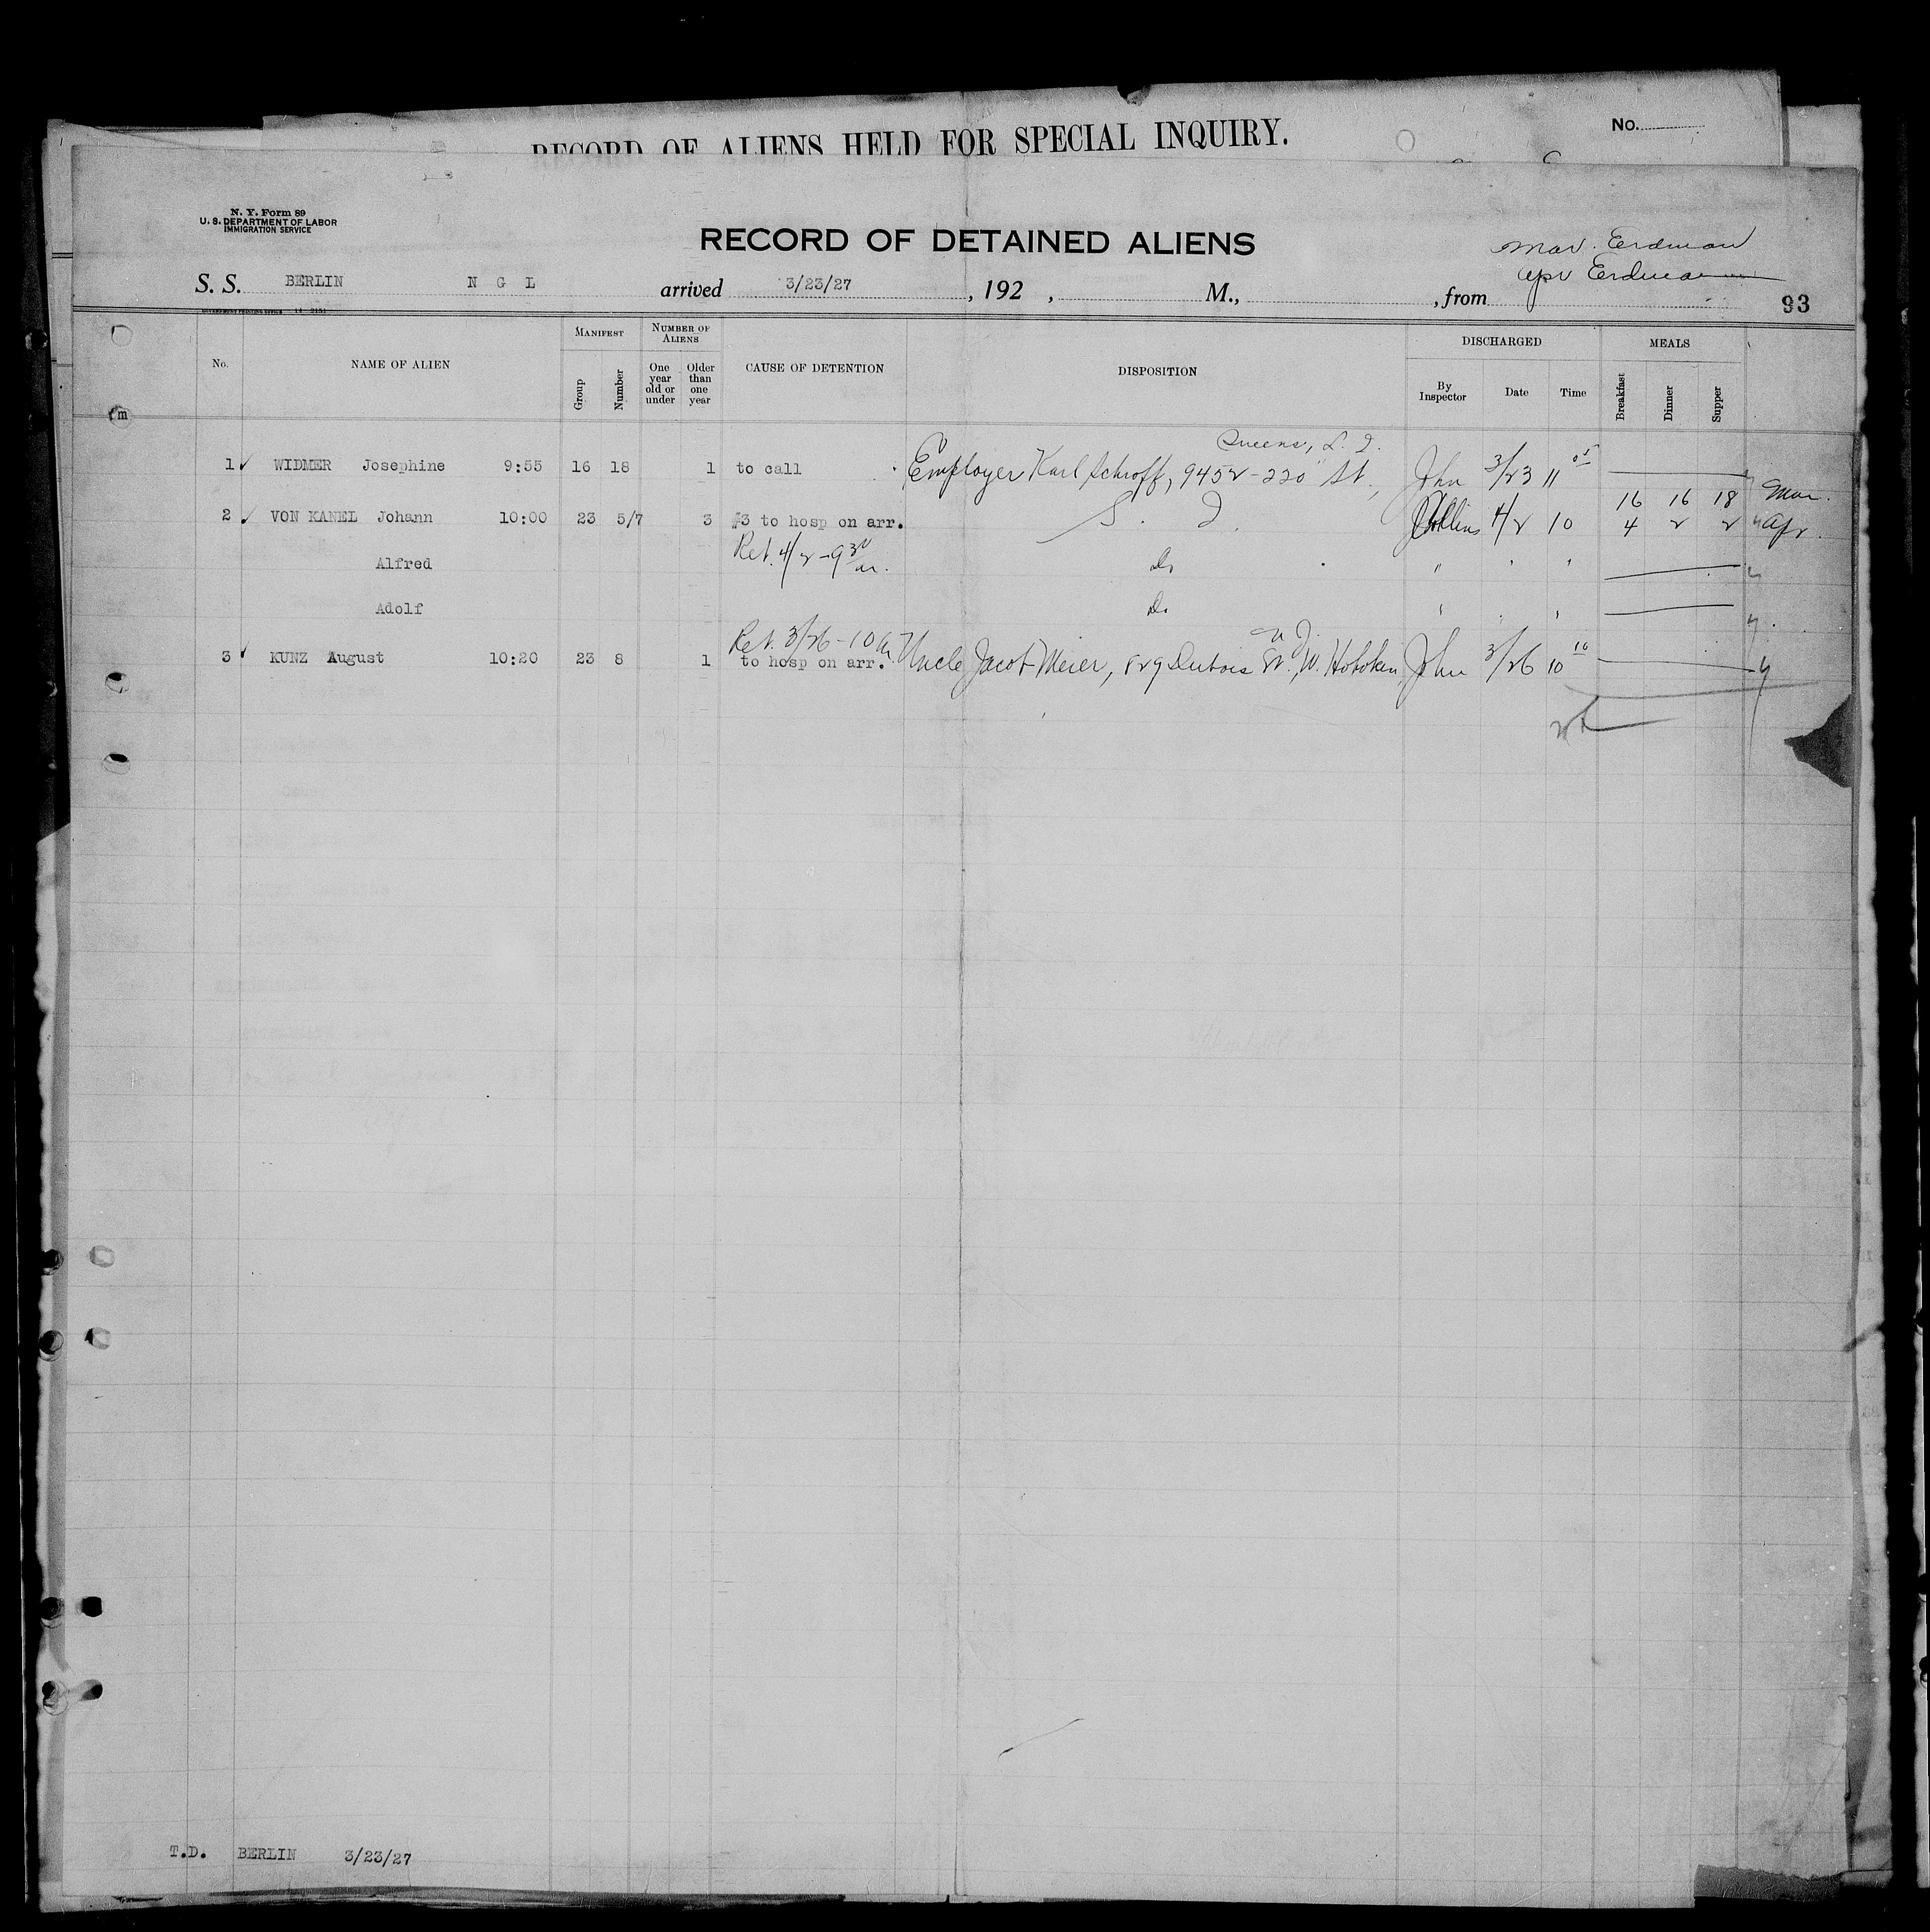 RECORD OF ALIENS HELD FOR SPECIAL INQUIRY.
No.
N. Y. Form 89
U. S. DEPARTMENT OF LABOR
IMMIGRATION SERVICE
RECORD OF DETAINED ALIENS
Mar. Erdman
Apr Erdman
S. S. BERLIN N G L arrived 3/23/27, 192 , M., , from
93
No. NAME OF ALIEN MANIFEST NUMBER OF ALIENS CAUSE OF DETENTION DISPOSITION DISCHARGED MEALS
Group Number One year old or under Older than one year By Inspector Date Time Breakfast Dinner Supper
Queens, L. I.
1 ✓ WIDMER Josephine 9:55 16 18 1 to call Employer Karl Schroff, 9452-220" St., John 3/23 11 05
16 16 18 Mar.
2 ✓ VON KANEL Johann 10:00 23 5/7 3 #3 to hosp on arr. S. I. Collins 4/2 10 4 2 2 Apr.
Ret. 4/2-9 30 m.
Alfred Do " " "
Adolf Do " " "
Ret. 3/26-10 m. N J.
3 ✓ KUNZ August 10:20 23 8 1 to hosp on arr. Uncle Jacob Meier, 829 Dubois St., W. Hoboken, John 3/26 10 10
T.D. BERLIN 3/23/27